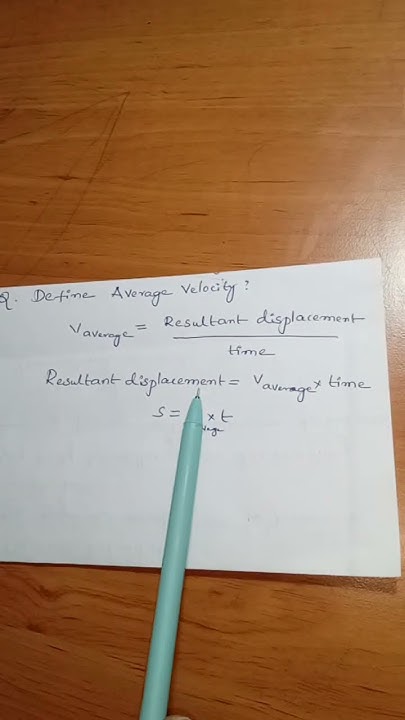 Q. Define Average Velocity?
Vaverage = Resultant displacement
time
Resultant displacement = Vaverage × time
S = × t